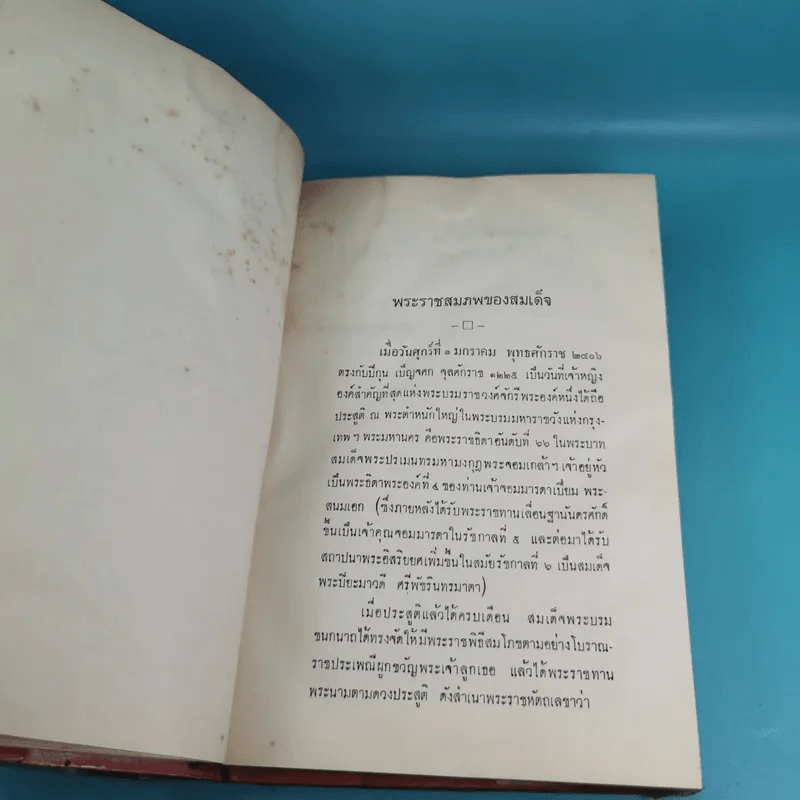 พระราชสมภพของสมเด็จ
เมื่อวันศุกร์ที่ ๑ มกราคม พุทธศักราช ๒๔๐๖
ตรงกับปีกุน เบ็ญจศก จุลศักราช ๑๒๒๕ เป็นวันที่เจ้าหญิง
องค์สำคัญที่สุดแห่งพระบรมราชวงศ์จักรีพระองค์หนึ่งได้ถือ
ประสูติ ณ พระตำหนักใหญ่ในพระบรมมหาราชวังแห่งกรุง-
เทพฯ พระมหานคร คือพระราชธิดาอันดับที่ ๖๖ ในพระบาท
สมเด็จพระปรเมนทรมหามงกุฎพระจอมเกล้าฯ เจ้าอยู่หัว
เป็นพระธิดาพระองค์ที่ ๕ ของท่านเจ้าจอมมารดาเปี่ยม พระ-
สนมเอก (ซึ่งภายหลังได้รับพระราชทานเลื่อนฐานันดรศักดิ์
ขึ้นเป็นเจ้าคุณจอมมารดาในรัชกาลที่ ๕ และต่อมาได้รับ
สถาปนาพระอิสริยยศเพิ่มขึ้นในสมัยรัชกาลที่ ๖ เป็นสมเด็จ
พระปิยะมาวดี ศรีพัชรินทรมาตา)
เมื่อประสูติแล้วได้ครบเดือน สมเด็จพระบรม
ชนกนาถได้ทรงจัดให้มีพระราชพิธีสมโภชตามอย่างโบราณ-
ราชประเพณีผูกขวัญพระเจ้าลูกเธอ แล้วได้พระราชทาน
พระนามตามดวงประสูติ ดังสำเนาพระราชหัตถเลขาว่า